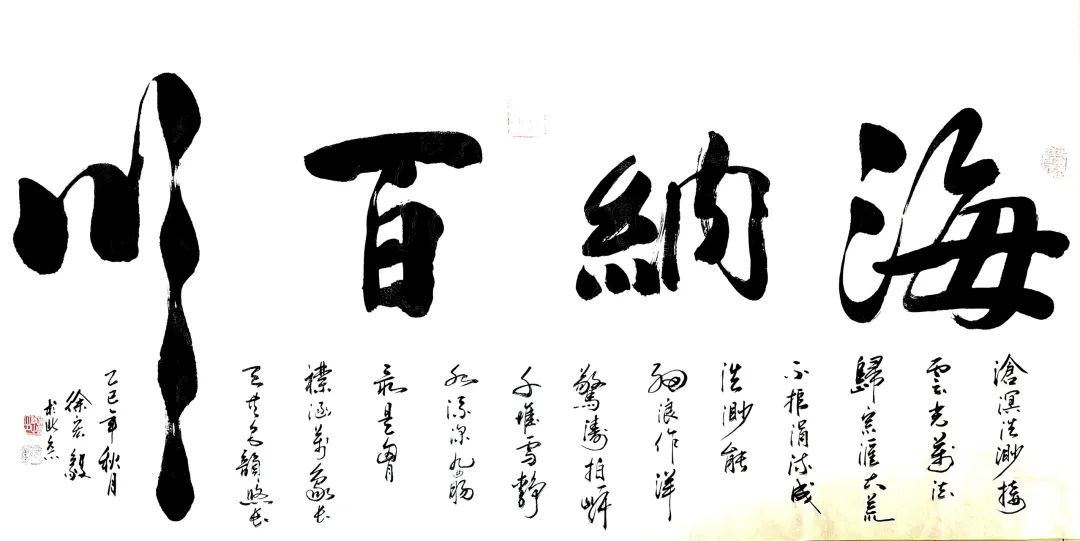 海納百川
滄溟浩渺接
雲光萬派
歸宗匯大荒
不拒涓流成
浩渺能
浪作洋
驚濤拍岸
千堆雪靜
水流深九曲腸
最是胸
襟涵萬象長
天共色韻悠長
乙巳年秋月
徐宏毅
於北京